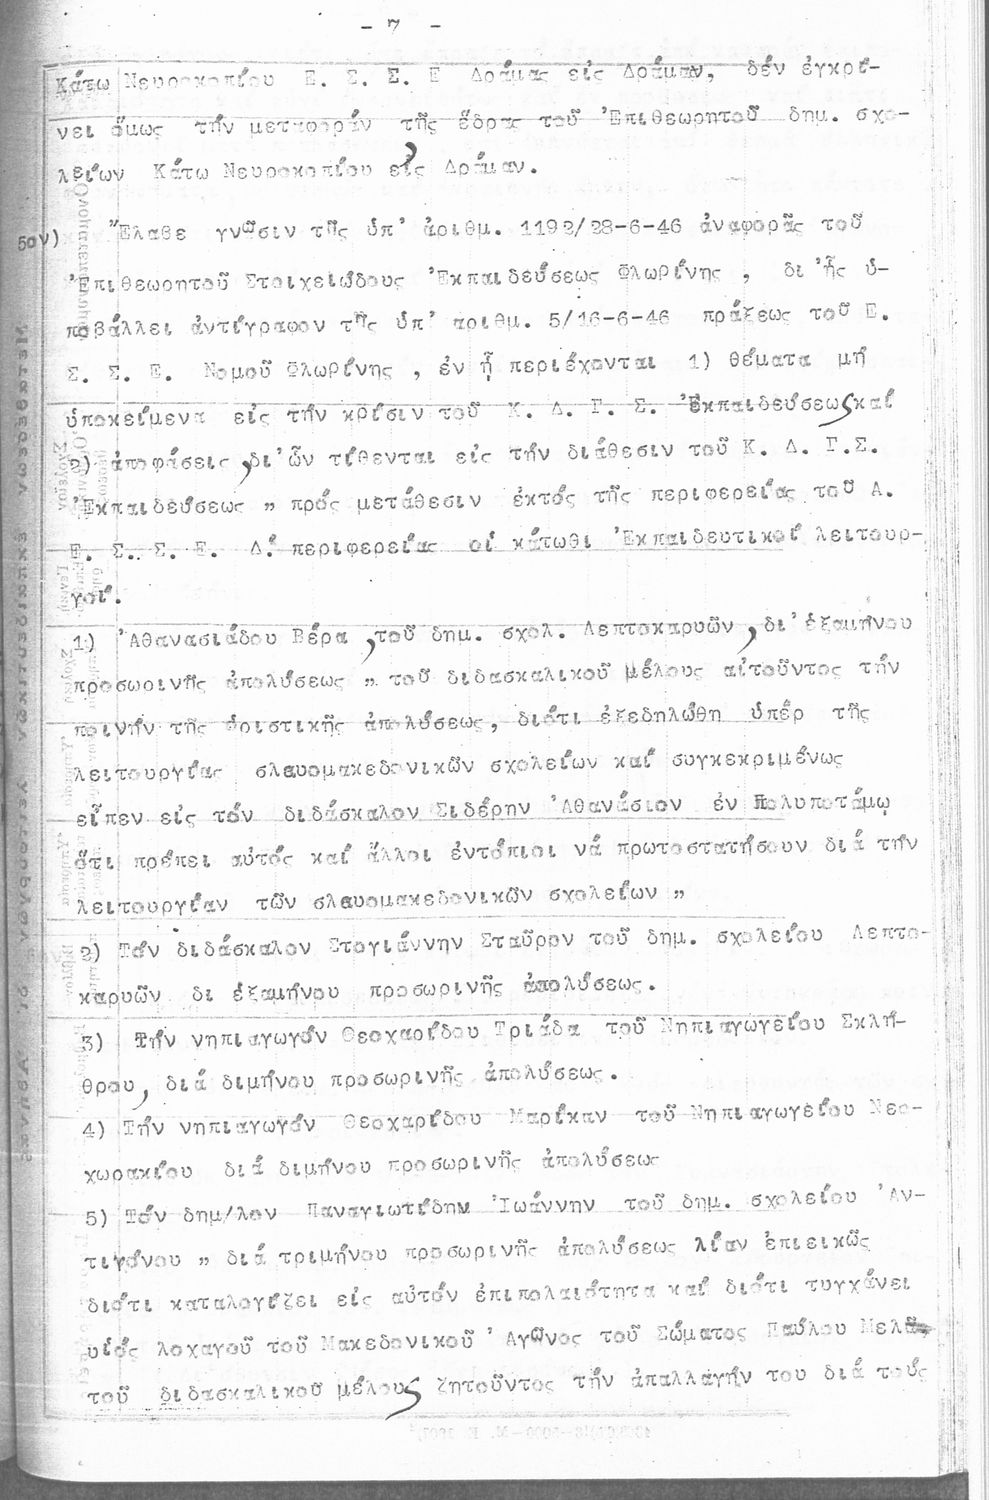 - 7 -
Κάτω Νευροκοπίου Ε. Σ. Σ. Ε Δράμας εἰς Δράμαν, δέν ἐγκρί-
νει ὅμως τήν μεταφοράν τῆς ἕδρας τοῦ Ἐπιθεωρητοῦ δημ. σχο-
λείων Κάτω Νευροκοπίου εἰς Δράμαν.
5ον) Ἔλαβε γνῶσιν τῆς ὑπ' ἀριθμ. 1192/28-6-46 ἀναφορᾶς τοῦ
Ἐπιθεωρητοῦ Στοιχειώδους Ἐκπαιδεύσεως Φλωρίνης , δι ἧς ὑ-
ποβάλλει ἀντίγραφον τῆς ὑπ' αριθμ. 5/16-6-46 πράξεως τοῦ Ε.
Σ. Σ. Ε. Νομοῦ Φλωρίνης , ἐν ᾗ περιέχονται 1) θέματα μή
ὑποκείμενα εἰς τήν κρίσιν τοῦ Κ. Δ. Γ. Σ. Ἐκπαιδεύσεως καί
2) ἀποφάσεις , δι'ὧν τίθενται εἰς τήν διάθεσιν τοῦ Κ. Δ. Γ.Σ.
Ἐκπαιδεύσεως " πρός μετάθεσιν ἐκτός τῆς περιφερείας τοῦ Α.
Ε. Σ. Σ. Ε. Δ. περιφερείας οἱ κάτωθι Ἐκπαιδευτικοί λειτουρ-
γοί.
1) Ἀθανασιάδου Βέρα , τοῦ δημ. σχολ. Λεπτοκαρυῶν , δι' ἑξαμήνου
προσωρινῆς ἀπολύσεως " τοῦ διδασκαλικοῦ μέλους αἰτοῦντος τήν
ποινήν τῆς ὁριστικῆς ἀπολύσεως, διότι ἐξεδηλώθη ὑπέρ τῆς
λειτουργίας σλαυομακεδονικῶν σχολείων καί συγκεκριμένως
εἶπεν εἰς τόν διδάσκαλον Σιδέρην Ἀθανάσιον ἐν Πολυποτάμῳ
ὅτι πρέπει αὐτός καί ἄλλοι ἐντόπιοι νά πρωτοστατήσουν διά τήν
λειτουργίαν τῶν σλαυομακεδονικῶν σχολείων "
2) Τόν διδάσκαλον Στογιάννην Σταῦρον τοῦ δημ. σχολείου Λεπτο-
καρυῶν δι ἑξαμήνου προσωρινῆς ἀπολύσεως.
3) Τήν νηπιαγωγόν Θεοχαρίδου Τριάδα τοῦ Νηπιαγωγείου Σκλή-
θρου, διά διμήνου προσωρινῆς ἀπολύσεως.
4) Τήν νηπιαγωγόν Θεοχαρίδου Μαρίκαν τοῦ Νηπιαγωγείου Νεο-
χωρακίου διά διμήνου προσωρινῆς ἀπολύσεως
5) Τόν δημ/λον Παναγιωτίδην Ἰωάννην τοῦ δημ. σχολείου Ἀν-
τιγόνου " διά τριμήνου προσωρινῆς ἀπολύσεως λίαν ἐπιεικῶς
διότι καταλογίζει εἰς αὐτόν ἐπιπολαιότητα καί διότι τυγχάνει
υἱός λοχαγοῦ τοῦ Μακεδονικοῦ Ἀγῶνος τοῦ Σώματος Παύλου Μελᾶ
τοῦ διδασκαλικοῦ μέλους ζητοῦντος τήν ἀπαλλαγήν του διά τούς